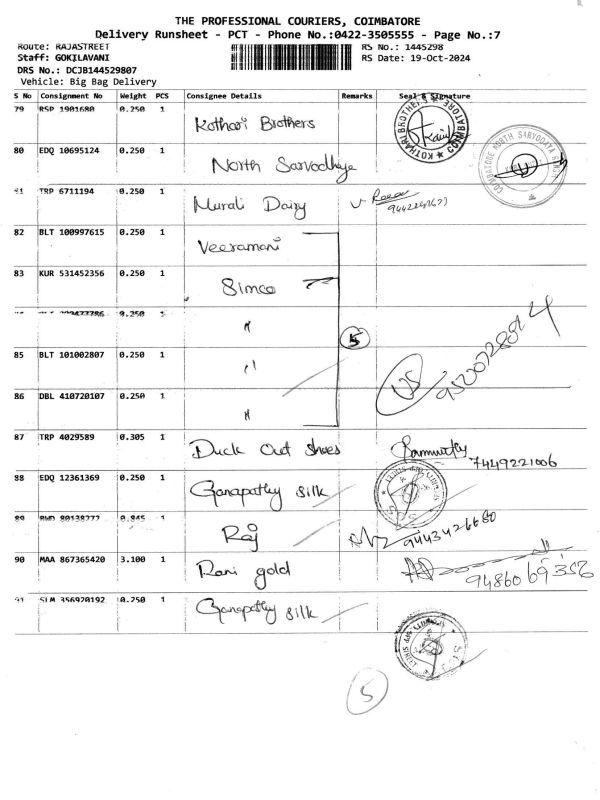 THE PROFESSIONAL COURIERS, COIMBATORE
Delivery Runsheet - PCT - Phone No.:0422-3505555 - Page No.:7
Route: RAJASTREET RS No.: 1445298
Staff: GOKILAVANI RS Date: 19-Oct-2024
DRS No.: DCJB144529807
Vehicle: Big Bag Delivery
S No Consignment No Weight PCS Consignee Details Remarks Seal & Signature
79 RSP 1901680 0.250 1 Kothari Brothers
KOTHARI BROTHERS
80 EDQ 10695124 0.250 1 North Sarvodhya
COIMBATORE NORTH SARVODAYA
TRP 6711194 0.250 1 Murali Dairy
82 BLT 100997615 0.250 1 Veeramani
83 KUR 531452356 0.250 1 Simco
0.250 1 "
5
85 BLT 101002807 0.250 1 "
86 DBL 410720107 0.250 1 "
87 TRP 4029589 0.305 1 Duck Out Shoes
7449221006
88 EDQ 12361369 0.250 1 Ganapathy silk
89 0.845 1 Raj 9443426680
90 MAA 867365420 3.100 1 Rani gold 9486069356
SLM 356920192 0.250 1 Ganapathy silk
5